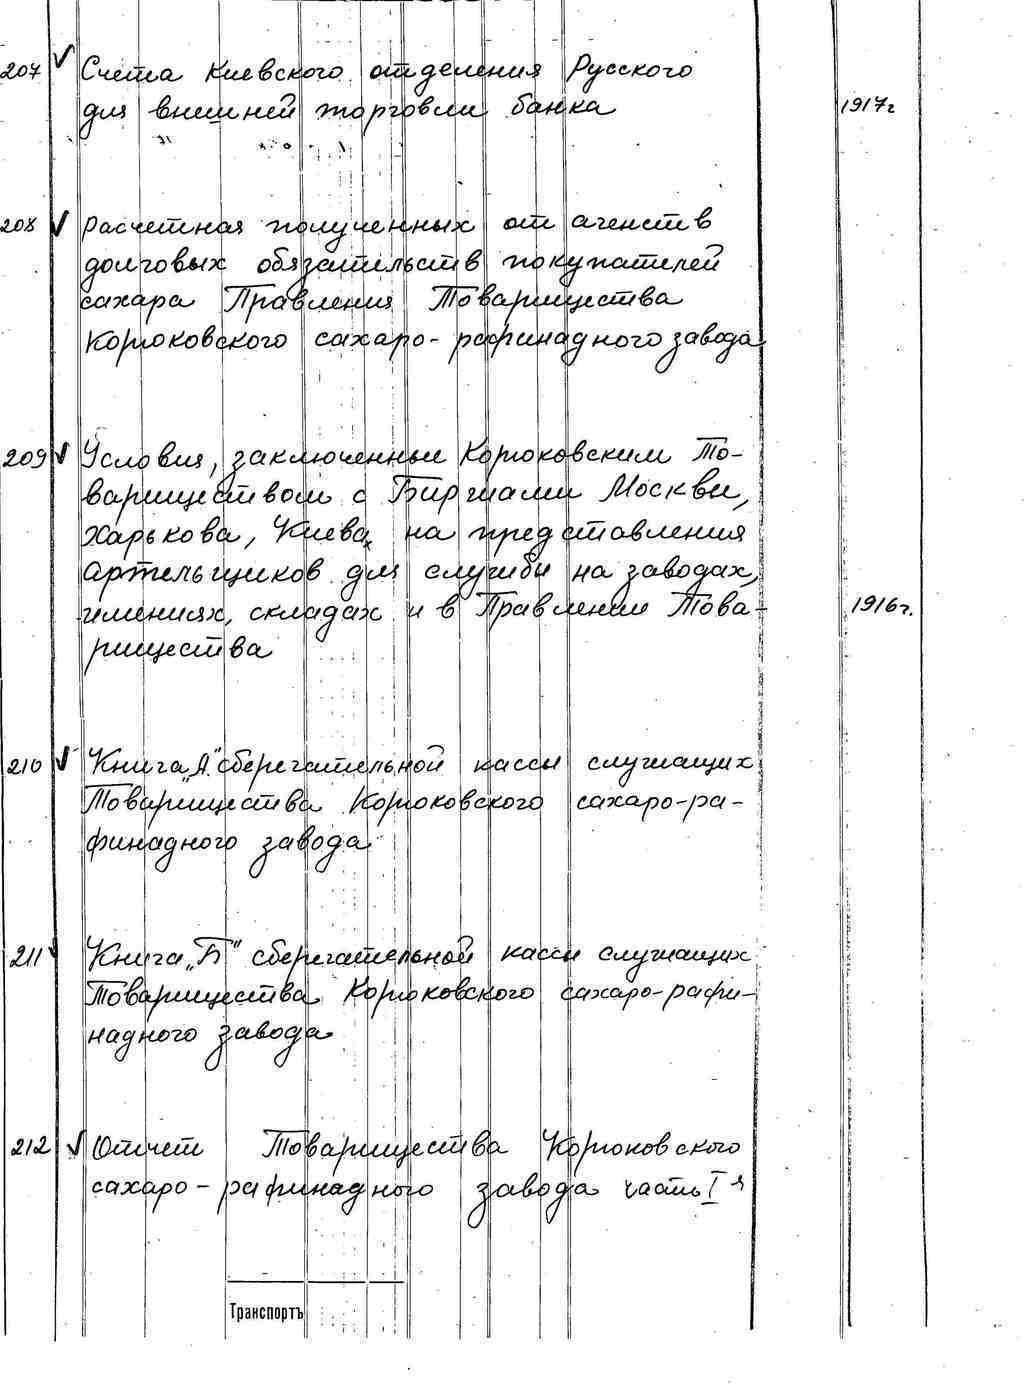 207 ✓ Счета Киевского отделения Русского
для внешней торговли банка 1917г
208 ✓ Расчетная полученных от агенств
долговых обязательств покупателей
сахара Правления Товарищества
Корюковского сахаро-рафинадного завода
209 ✓ Условия, заключенные Корюковским То-
вариществом с Биржами Москвы,
Харькова, Киева, на представления
артельщиков для службы на заводах,
имениях, складах и в Правлении Това- 1916г.
рищества
210 ✓ Книга „А" сберегательной кассы служащих
Товарищества Корюковского сахаро-ра-
финадного завода
211 ✓ Книга „Б" сберегательной кассы служащих
Товарищества Корюковского сахаро-рафи-
надного завода
212 ✓ Отчет Товарищества Корюковского
сахаро-рафинадного завода часть I я
Транспортъ